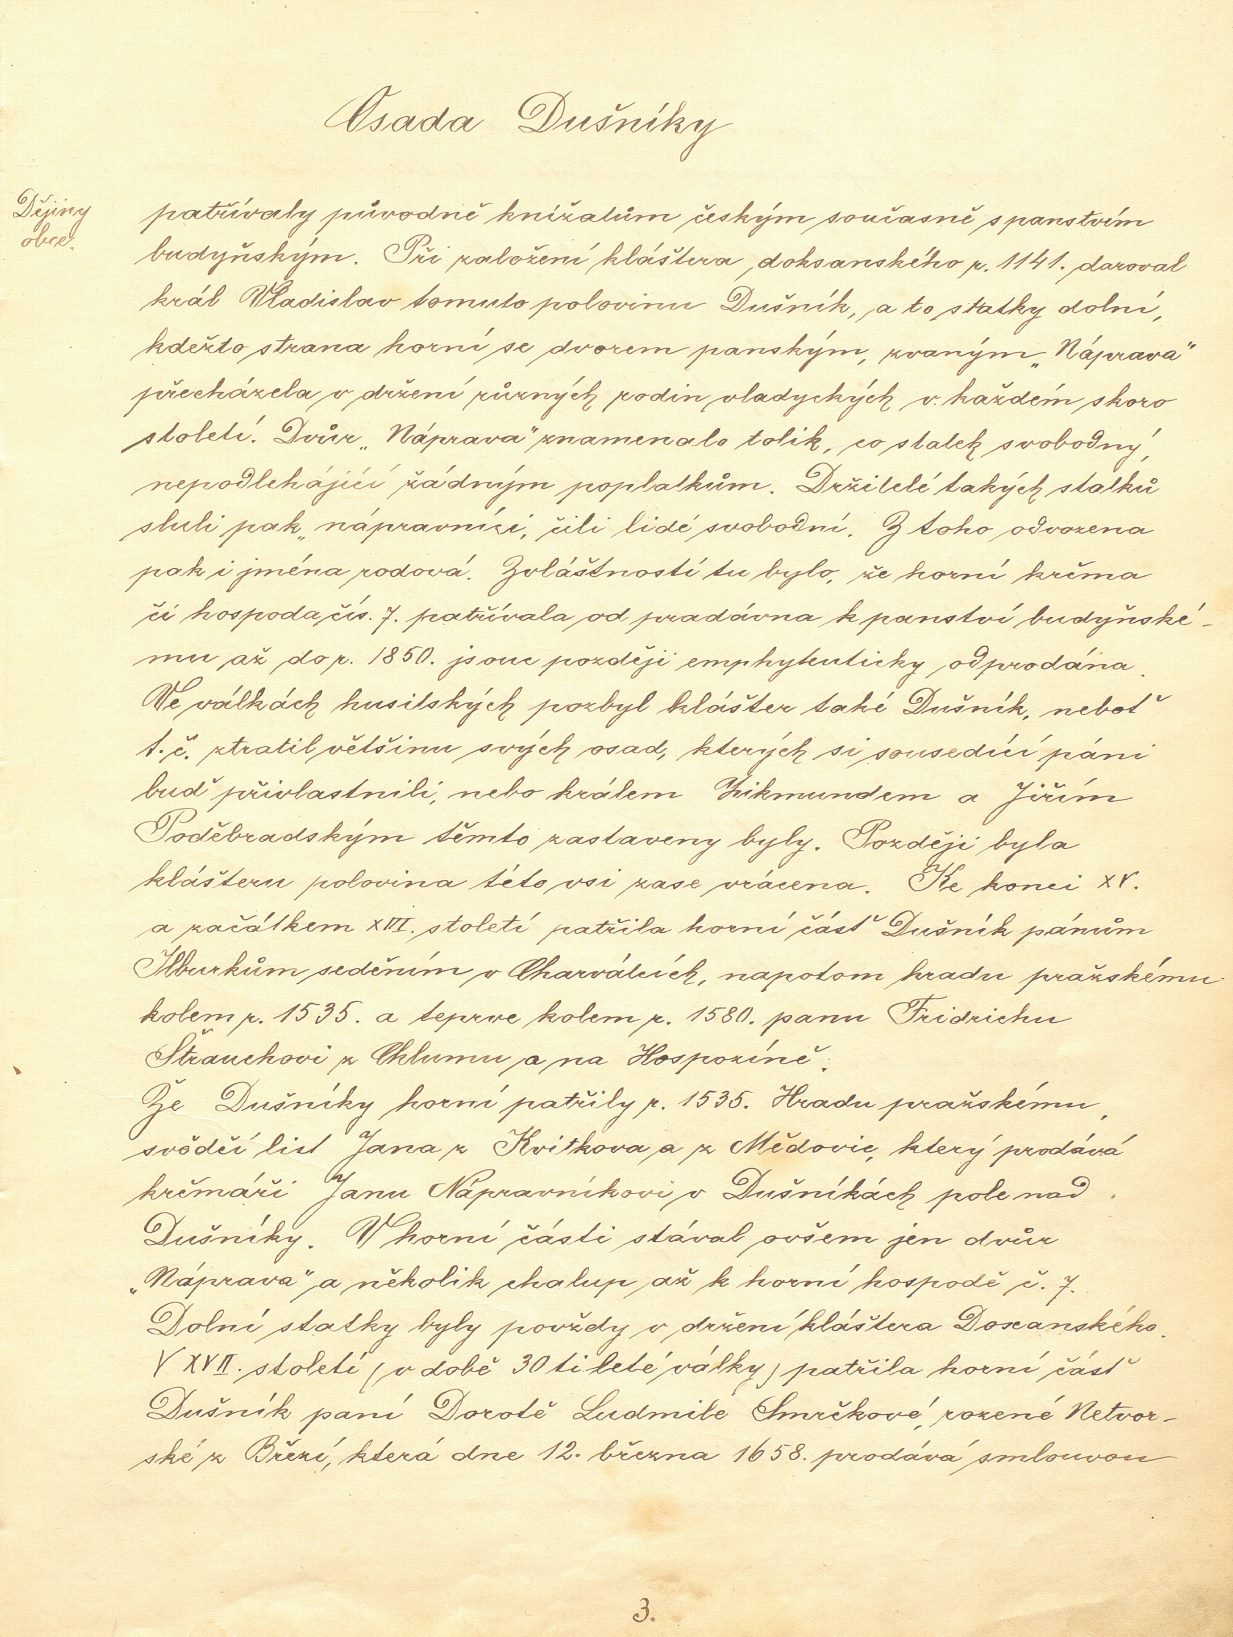 Osada Dušníky
Dějiny
obce.
patřívaly původně knížatům českým současně s panstvím
budyňským. Při založení kláštera doksanského r. 1141. daroval
král Vladislav tomuto polovinu Dušník, a to statky dolní,
kdežto strana horní se dvorem panským, zvaným „Náprava"
přecházela v držení různých rodin vladyckých v každém skoro
století. Dvůr „Náprava" znamenalo tolik, co statek svobodný,
nepodlehající žádným poplatkům. Držitelé takých statků
sluli pak „nápravníci, čili lidé svobodní. Z toho odvozena
pak i jména rodová. Zvláštností tu bylo, že horní krčma
či hospoda čís. 7. patřívala od pradávna k panství budyňské-
mu až do r. 1850. jsouc později emphyteuticky odprodána.
Ve válkách husitských pozbyl klášter také Dušník, neboť
t. č. ztratil většinu svých osad, kterých si sousedící páni
buď přivlastnili, nebo králem Zikmundem a Jiřím
Poděbradským těmto zastaveny byly. Později byla
klášteru polovina této vsi zase vrácena. Ke konci XV.
a začátkem XVI. století patřila horní část Dušník pánům
Ilburkům seděním v Charvátcích, napotom hradu pražskému
kolem r. 1535. a teprve kolem r. 1580. panu Fridrichu
Štrauchovi z Chlumu a na Hospozíně.
Že Dušníky horní patřily r. 1535. Hradu pražskému,
svědčí list Jana z Kvítkova a z Mědovic, který prodává
krčmáři Janu Nápravníkovi v Dušníkách pole nad
Dušníky. V horní části stával ovšem jen dvůr
„Náprava" a několik chalup až k horní hospodě č. 7.
Dolní statky byly povždy v držení kláštera Doxanského.
V XVII. století (v době 30tileté války) patřila horní část
Dušník paní Dorotě Ludmile Smrčkové, rozené Netvor-
ské z Březí, která dne 12. března 1658. prodává smlouvou
3.